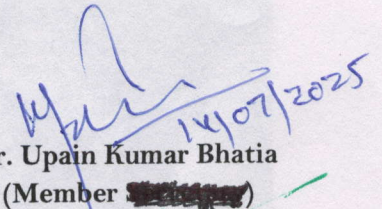 14/07/2025
r. Upain Kumar Bhatia
(Member )